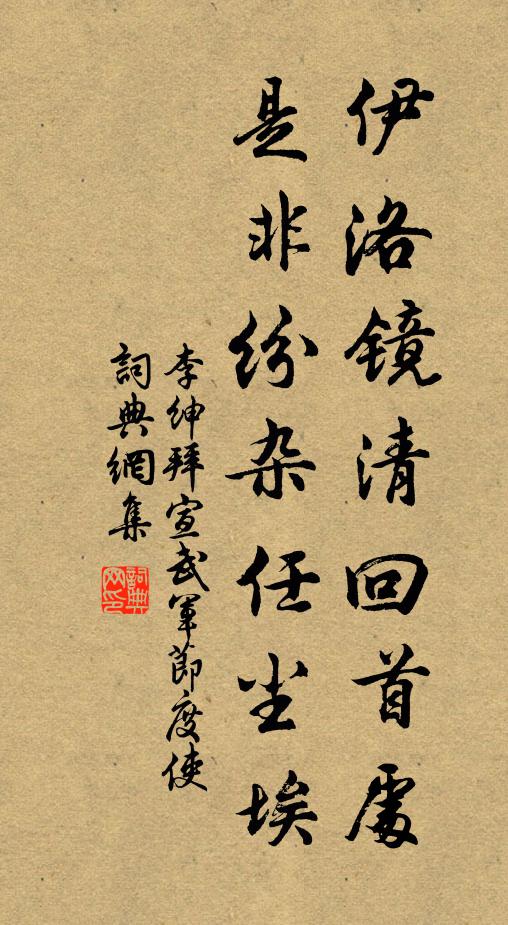 伊洛镜清回首處
是非纷杂任尘埃
李绅拜宣武軍節度使
詞典網集
詞典网印